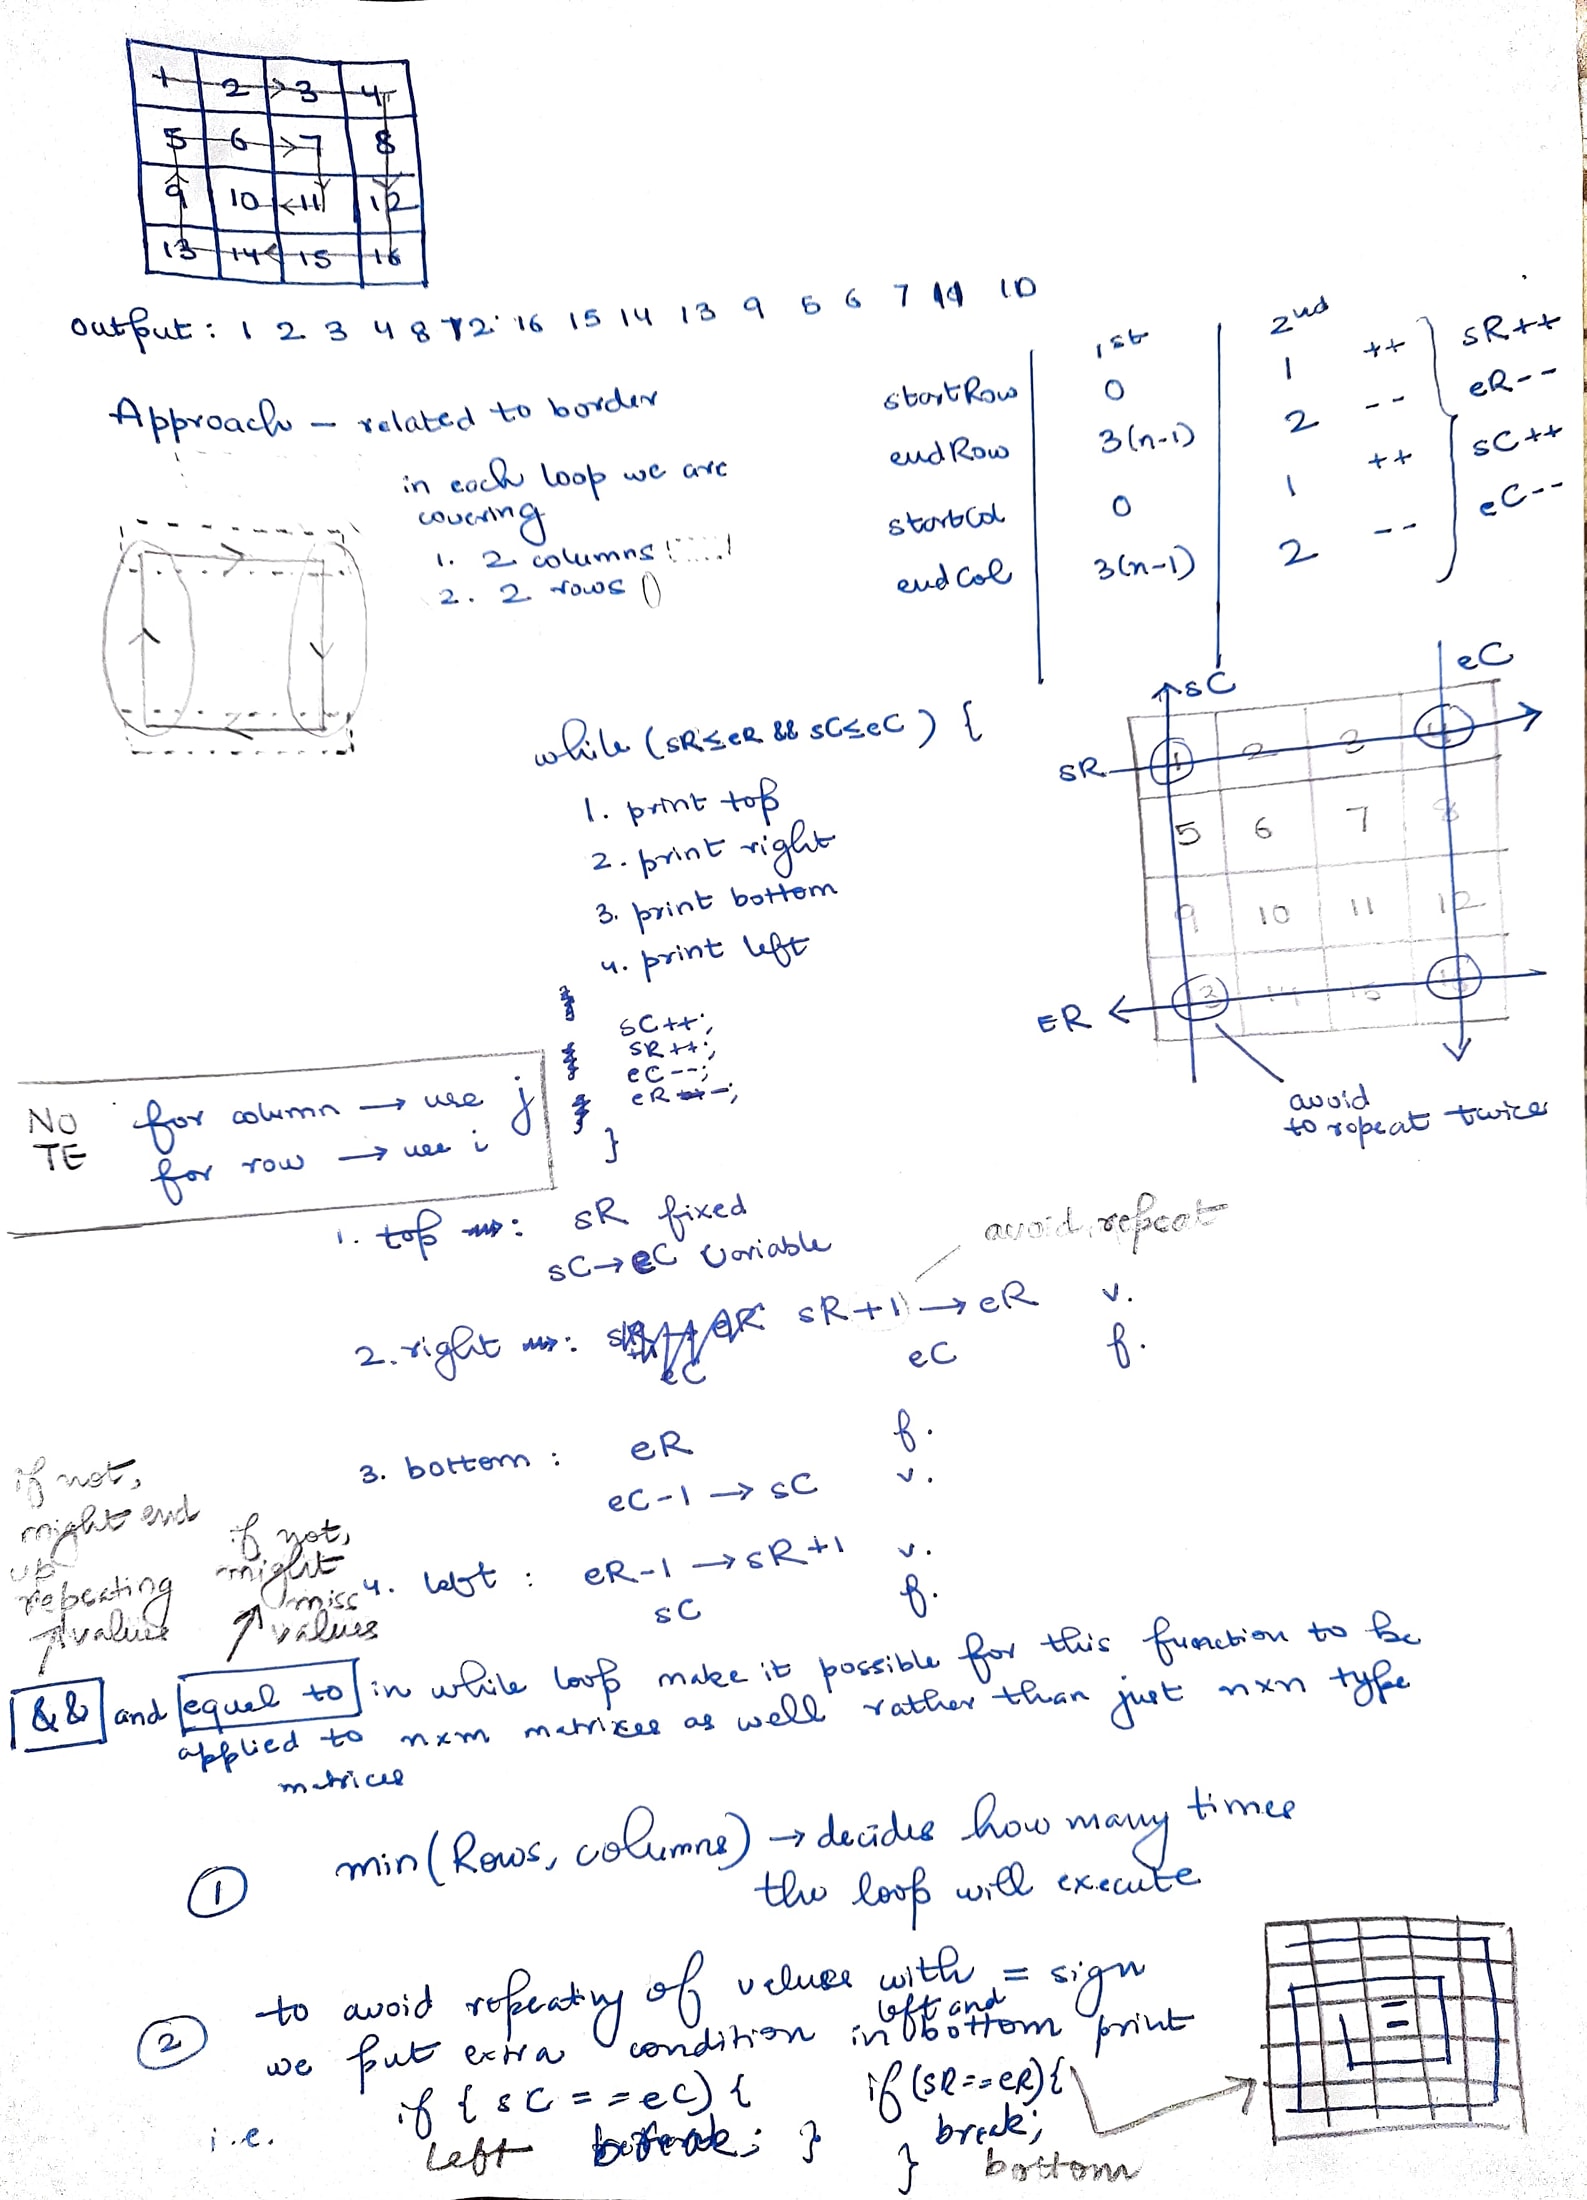 1 2 3 4
5 6 7 8
9 10 11 12
13 14 15 16
output: 1 2 3 4 8 12 16 15 14 13 9 5 6 7 11 10
Approach - related to border
in each loop we are
covering
1. 2 columns
2. 2 rows ()
1st 2nd
startRow 0 1 ++ sR++
endRow 3(n-1) 2 -- eR--
startCol 0 1 ++ sC++
endCol 3(n-1) 2 -- eC--
while (sR≤eR && sC≤eC) {
1. print top
2. print right
3. print bottom
4. print left
sC++;
sR++;
eC--;
eR--;
}
sC eC
SR 1 2 3 4
5 6 7 8
9 10 11 12
ER 13 14 15 16
avoid
to repeat twice
NO
TE
for column → use j
for row → use i
1. top : sR fixed
sC→eC Variable
avoid repeat
2. right : sR+1 → eR v.
eC f.
3. bottom : eR f.
eC-1 → sC v.
4. left : eR-1 → sR+1 v.
sC f.
if not,
might end
up
repeating
values
if not,
might
miss
values
&& and equal to in while loop make it possible for this function to be
applied to nxm matrixes as well rather than just nxn type
matrices
1 min(Rows, columns) → decides how many times
the loop will execute
2 to avoid repeating of values with = sign
we put extra condition in left and bottom print
i.e. if { sC == eC) { if (sR==eR) {
left break; } break;
} bottom